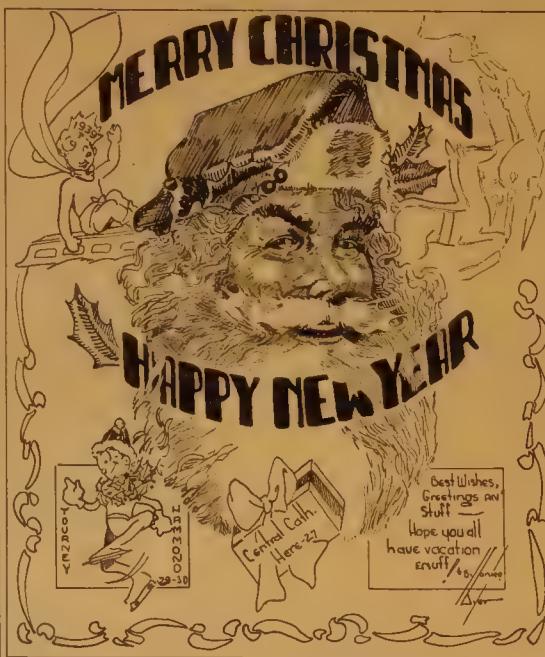 MERRY CHRISTMAS
1939
HAPPY NEW YEAR
TOURNEY
HAMMOND
29-30
Central Cath.
Here-27
Best Wishes,
Greetings an'
Stuff —
Hope you all
have vacation
enuff!
By